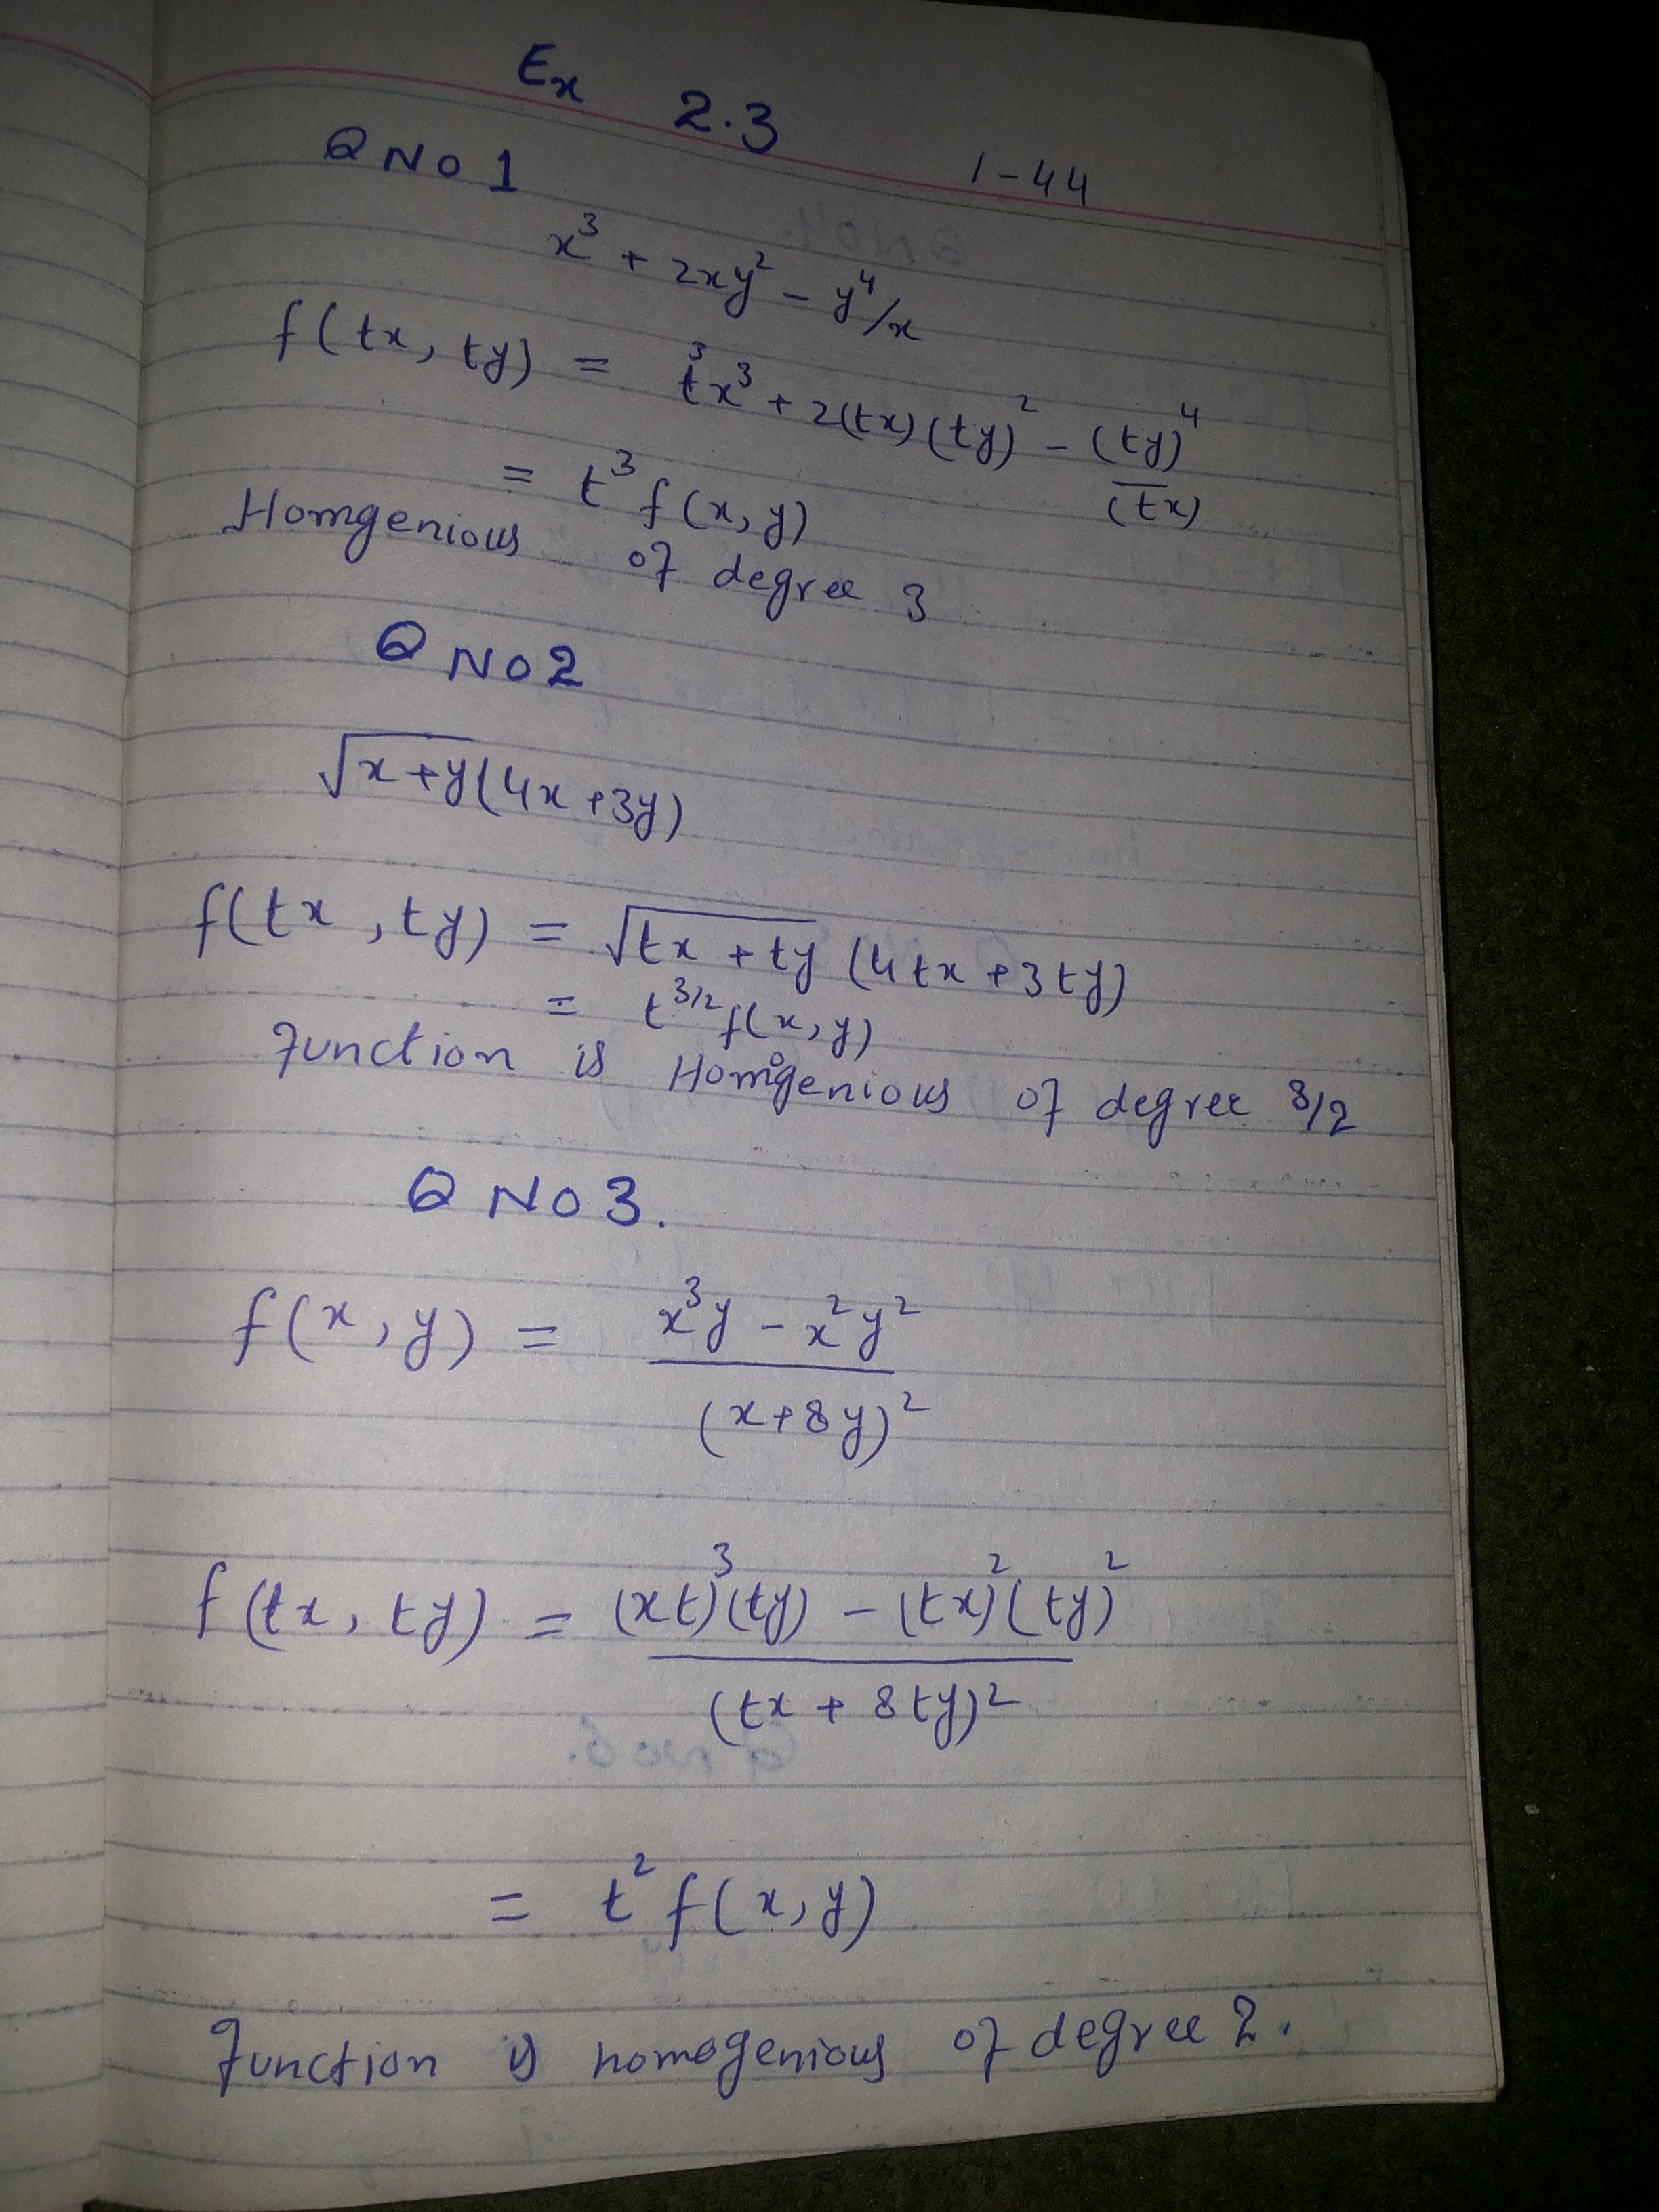 Ex 2.3
Q NO 1
1-44
x³ + 2xy² - y⁴/x
f(tx, ty) = t³x³ + 2(tx)(ty)² - (ty)⁴/(tx)
= t³ f(x, y)
Homgenious of degree 3
Q NO 2
√x+y(4x+3y)
f(tx, ty) = √tx + ty (4tx + 3ty)
= t^3/2 f(x, y)
Function is Homogenious of degree 3/2
Q NO 3.
f(x, y) = x³y - x²y² / (x+8y)²
f(tx, ty) = (xt)³(ty) - (tx)²(ty)² / (tx + 8ty)²
= t² f(x, y)
Function is homogenious of degree 2.